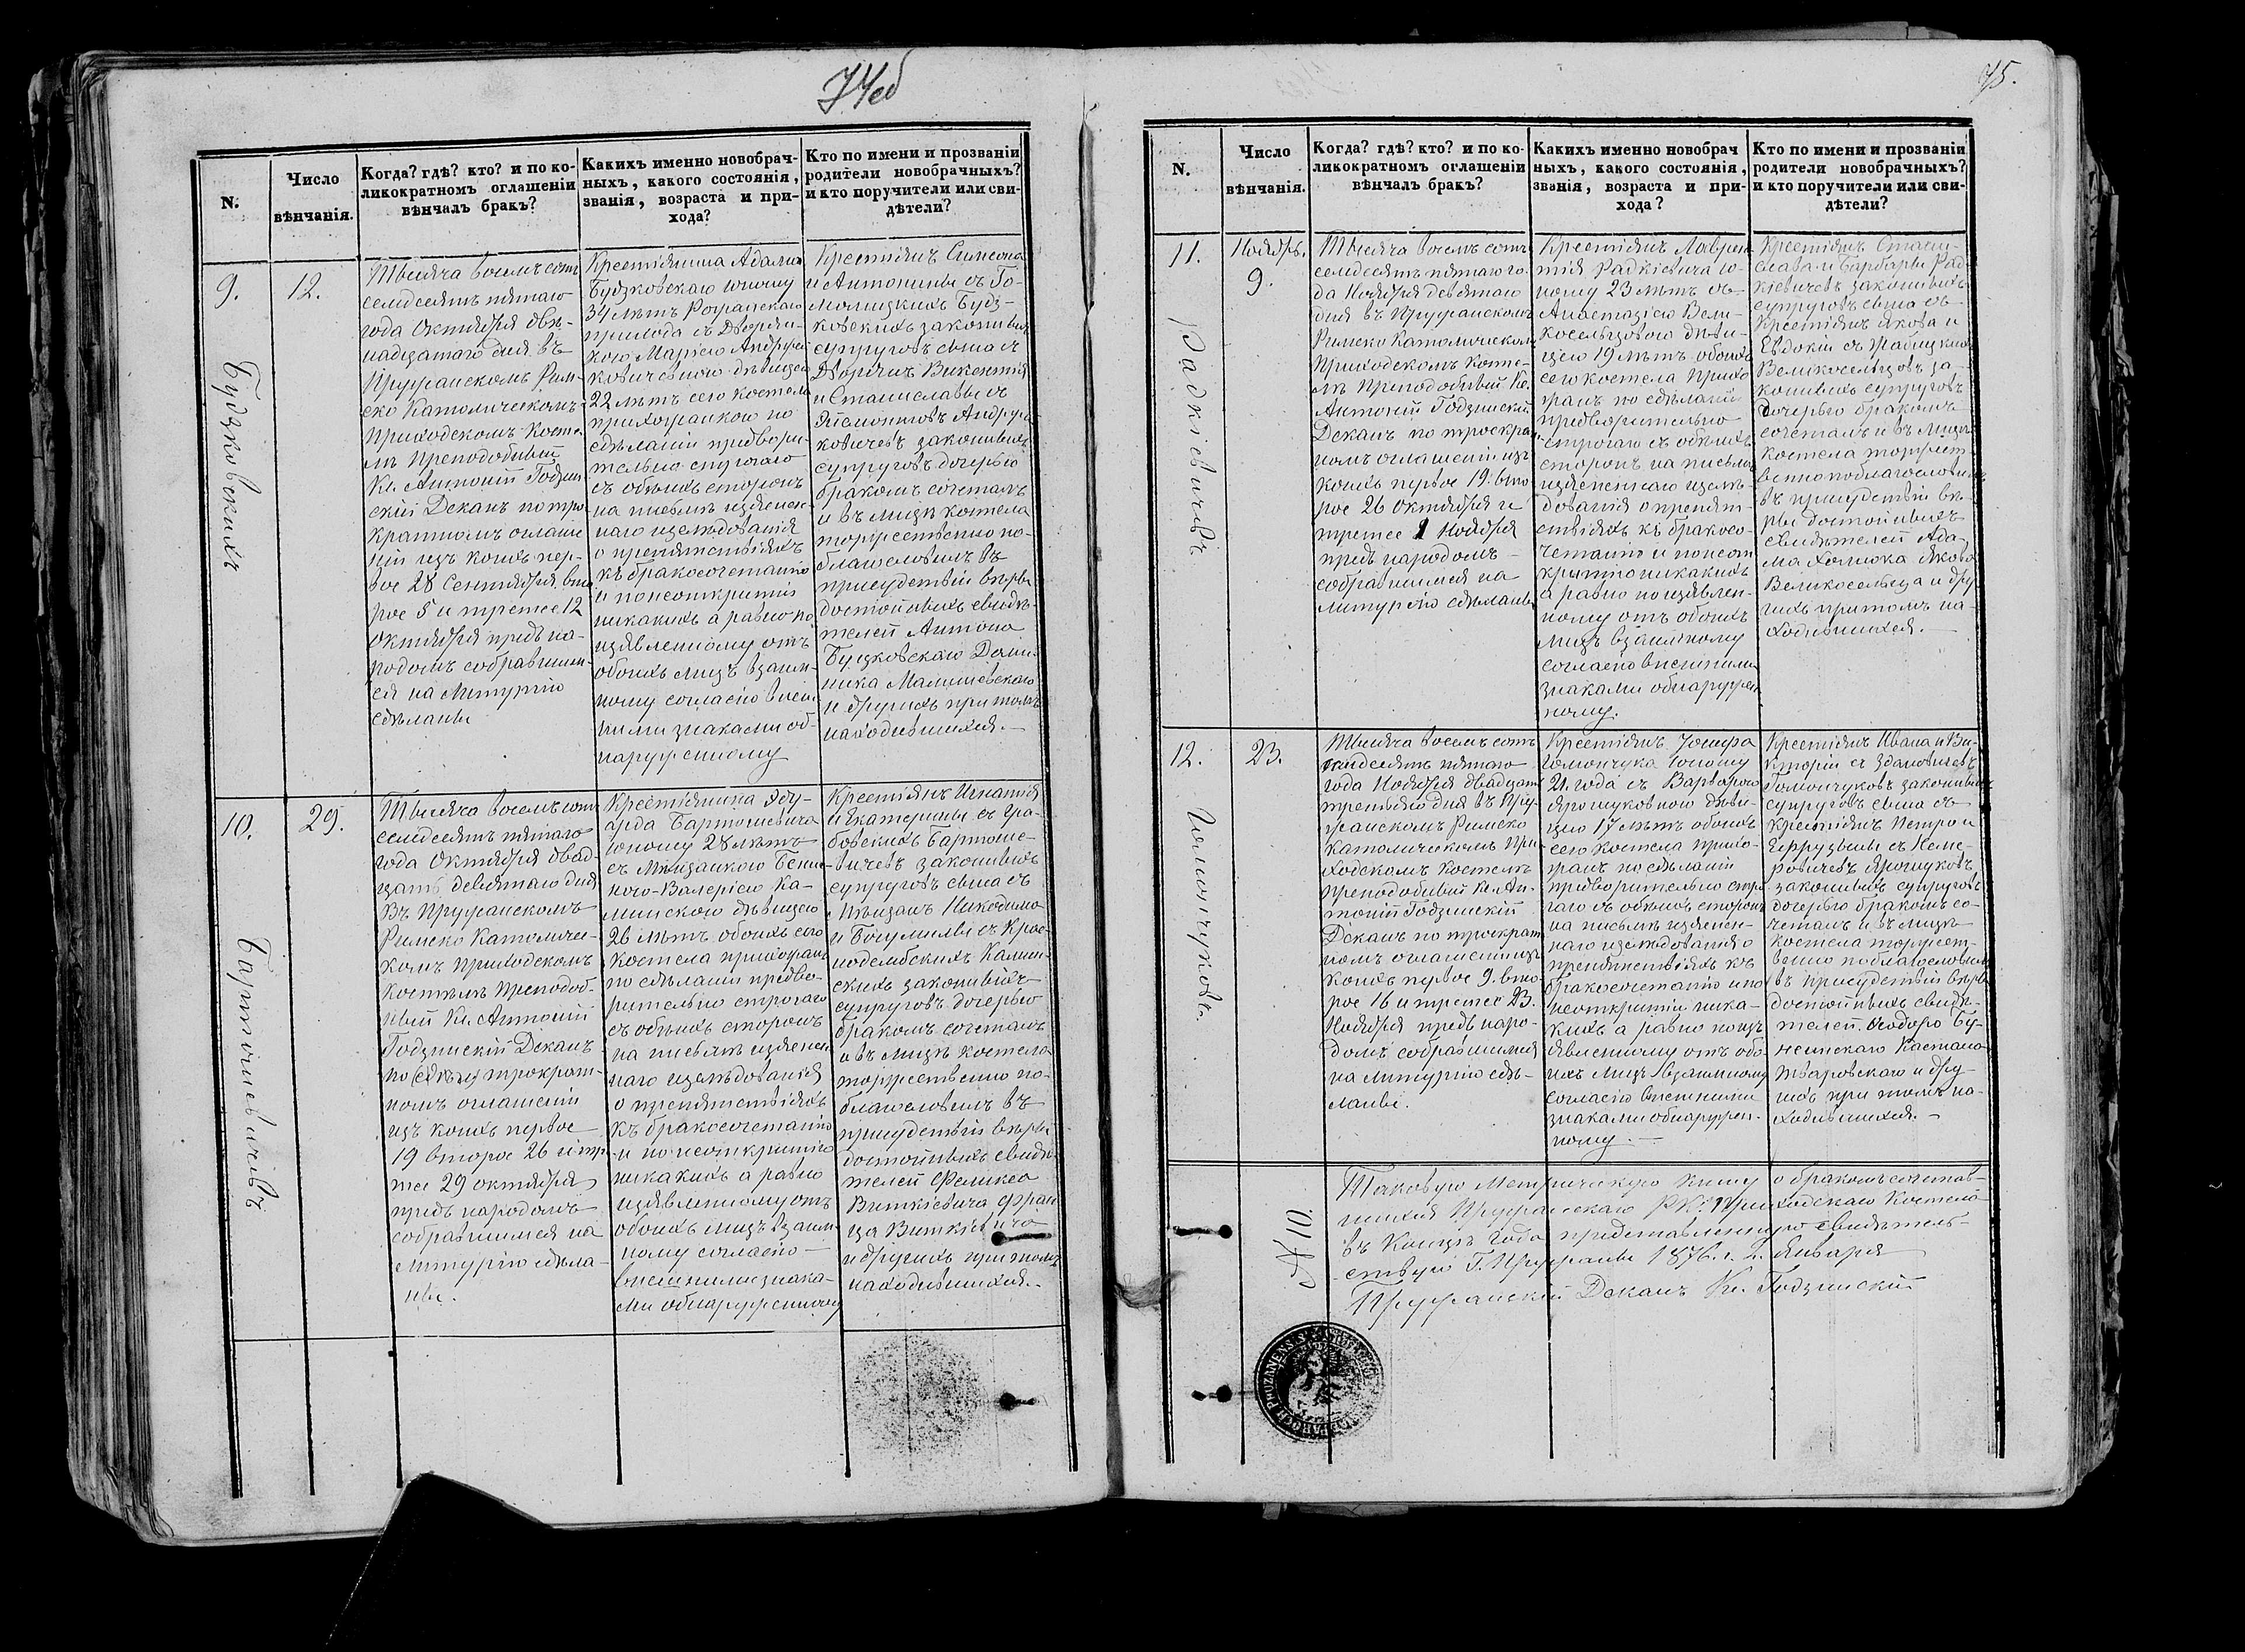 74об
N.
Число
вѣнчанія.
Когда? гдѣ? кто? и по ко-
ликократномъ оглашеніи
вѣнчалъ бракъ?
Какихъ именно новобрач-
ныхъ, какого состоянія,
званія, возраста и при-
хода?
Кто по имени и прозваніи
родители новобрачныхъ?
и кто поручители или сви-
дѣтели?
9.
Будзковскихъ
12.
Тысяча восемь сотъ
семдесятъ пятаго
года Октября двѣ-
надцатаго дня въ
Пружанскомъ Рим-
ско Католическомъ
Приходскомъ Косте-
лѣ Преподобный
Кс. Антоній Годзин-
скій Деканъ по тро-
кратномъ оглаше
ніи изъ коихъ пер-
вое 28 Сентября вто
рое 5 и третее 12
Октября предъ на-
родомъ собравшим-
ся на Литургію
сдѣланы
Крестіянина Адама
Будзковскаго юношу
34 лѣтъ Рожанскаго
прихода съ Дворян-
кою Маріею Андруш
ковичевною дѣвицею
22 лѣтъ сего костела
прихожанкою по
сдѣланіи предвори-
тельно строгаго
съ обѣихъ сторонъ
на письмѣ изяснен-
наго изслѣдованія
о препятствіяхъ
къ бракосочетанію
и понеоткритіи
никакихъ а равно по
изявленному отъ
обоихъ лицъ взаим-
ному согласію внеш
ними знаками об-
наруженному
Крестіянъ Симеона
и Антонины съ Го-
молицкихъ Будз-
ковскихъ законныхъ
супруговъ сына съ
Дворянъ Викентія
и Станиславы съ
Андруш
ковичевъ законныхъ
супруговъ дочерью
бракомъ сочеталъ
и въ лицѣ костела
торжественно по-
благословилъ въ
присудствіи вѣры
достойныхъ свидѣ-
телей Антона
Будзковскаго Доми-
ника Малишевскаго
и другихъ при томъ
находившихся.—
10.
Бартошевичевъ
29.
Тысяча восемь сотъ
семдесятъ пятаго
года Октября двад-
цать девятаго дня
Въ Пружанскомъ
Римско Католиче-
комъ Приходскомъ
Костелѣ Преподоб-
ный Кс. Антоній
Годзинскій Деканъ
по трократ-
номъ оглашеніи
изъ коихъ первое
19 второе 26 и тре
тее 29 октября
предъ народомъ
собравшимся на
Литургію сдѣла-
ны.
Крестіянина Эду-
арда Бартошевича
юношу 28 лѣтъ
съ Мѣщанкою Бениг
ною-Валеріею Ка-
минскою дѣвицею
26 лѣтъ обоихъ сего
Костела прихожанъ
по сдѣланіи предво-
рительно строгаго
съ обѣихъ сторонъ
на письмѣ изяснен
наго изслѣдованія
о препятствіяхъ
къ бракосочетанію
и по неоткритію
никакихъ а равно
изявленному отъ
обоихъ лицъ взаим-
ному согласію—
внешними знака-
ми обнаруженному
Крестіянъ Игнатія
и Екатерины съ Гра-
бовскихъ Бартоше-
вичевъ законныхъ
супруговъ сына съ
Мѣщанъ Никодима
и Богумилы съ Крас-
нодембскихъ Камин-
скихъ законныхъ
супруговъ дочерью
бракомъ сочеталъ
и въ лицѣ костела
торжественно по-
благословилъ въ
присудствіи вѣры
достойныхъ свидѣ
телей Феликса
Виткіевича Фран
ца Виткіевича
и другихъ при томъ
находившихся.—
75.
N.
Число
вѣнчанія.
Когда? гдѣ? кто? и по ко-
ликократномъ оглашеніи
вѣнчалъ бракъ?
Какихъ именно новобрач
ныхъ, какого состоянія,
званія, возраста и при-
хода?
Кто по имени и прозваніи
родители новобрачныхъ?
и кто поручители или сви-
дѣтели?
11.
Радкіевичевъ
Ноябрь.
9.
Тысяча восемь сотъ
семдесятъ пятаго го-
да Ноября девятаго
дня въ Пружанскомъ
Римско Католическомъ
Приходскомъ Косте-
лѣ Преподобный Кс.
Антоній Годзинскій
Деканъ по троекрат
номъ оглашеніи изъ
коихъ первое 19. вто-
рое 26 Октября и
третее 1 Ноября
предъ народомъ—
собравшимся на
Литургію сдѣланы
Крестіянъ Лаврен-
тія Радкіевича ю-
ношу 23 лѣтъ съ
Анастазіею Вели-
косельцовою дѣви-
цею 19 лѣтъ обоихъ
сего костела прихо
жанъ по сдѣланіи
предворительно
строгаго съ обѣихъ
сторонъ на письмѣ
изясненнаго изслѣ-
дованія о препят-
ствіяхъ къ бракосо-
четанію и понеот
критію никакихъ
а равно по изявлен-
ному отъ обоихъ
лицъ взаимному
согласію внешними
знаками обнаружен
ному.
Крестіянъ Стани-
слава и Барбары Рад-
кіевичевъ законныхъ
супруговъ сына съ
Крестіянъ Якова и
Евдокіи съ
Великосельцовъ за-
конныхъ супруговъ
дочерью бракомъ
сочеталъ и въ лицѣ
костела торжест-
венно поблагословилъ
въ присудствіи вѣ-
ры достойныхъ
свидѣтелей Ада-
ма Якова
Великосельца и дру
гихъ при томъ на-
ходившихся.—
12.
Гомончуковъ.
23.
Тысяча восемь сотъ
семдесятъ пятаго
года Ноября двадцать
третьяго дня въ Пру-
жанскомъ Римско
Католическомъ При
ходскомъ Костелѣ
Преподобный Кс. Ан-
тоній Годзинскій
Деканъ по троекрат
номъ оглашеніи изъ
коихъ первое 9. вто-
рое 16 и третее 23.
Ноября предъ наро-
домъ собравшимся
на Литургію сдѣ-
ланы.
Крестіянъ Іосифа
Гомончука юношу
21. года съ Варварою
Ярошуковною дѣви-
цею 17 лѣтъ обоихъ
сего Костела прихо-
жанъ по сдѣланіи
предворительно стро
гаго съ обѣихъ сторонъ
на письмѣ изяснен-
наго изслѣдованія о
препятствіяхъ къ
бракосочетанію и по
неоткритіи ника-
кихъ а равно по изъ
явленному отъ обо
ихъ лицъ взаимному
согласію внешними
знаками обнаружен-
ному.—
Крестіянъ Ивана и Ви-
кторіи съ Здановичевъ
Гомончуковъ законныхъ
супруговъ сына съ
Крестіянъ Петра и
съ
Ярошуковъ
законныхъ супруговъ
дочерью бракомъ со-
четалъ и въ лицѣ
Костела торжест-
венно поблагословилъ
въ присудствіи вѣры
достойныхъ свидѣ-
телей. Феодора
Каетана
Тваровскаго и дру-
гихъ при томъ на-
ходившихся.—
№ 110.
Таковую Метрическую Книгу о бракомъ сочетав-
шихся Пружанскаго Р.К. Приходскаго Костела
въ Концѣ года представленную свидѣтель-
ствую Г. Пружаны 1876. г. 2. Января
Пружанскій Деканъ Кс. Годзинскій